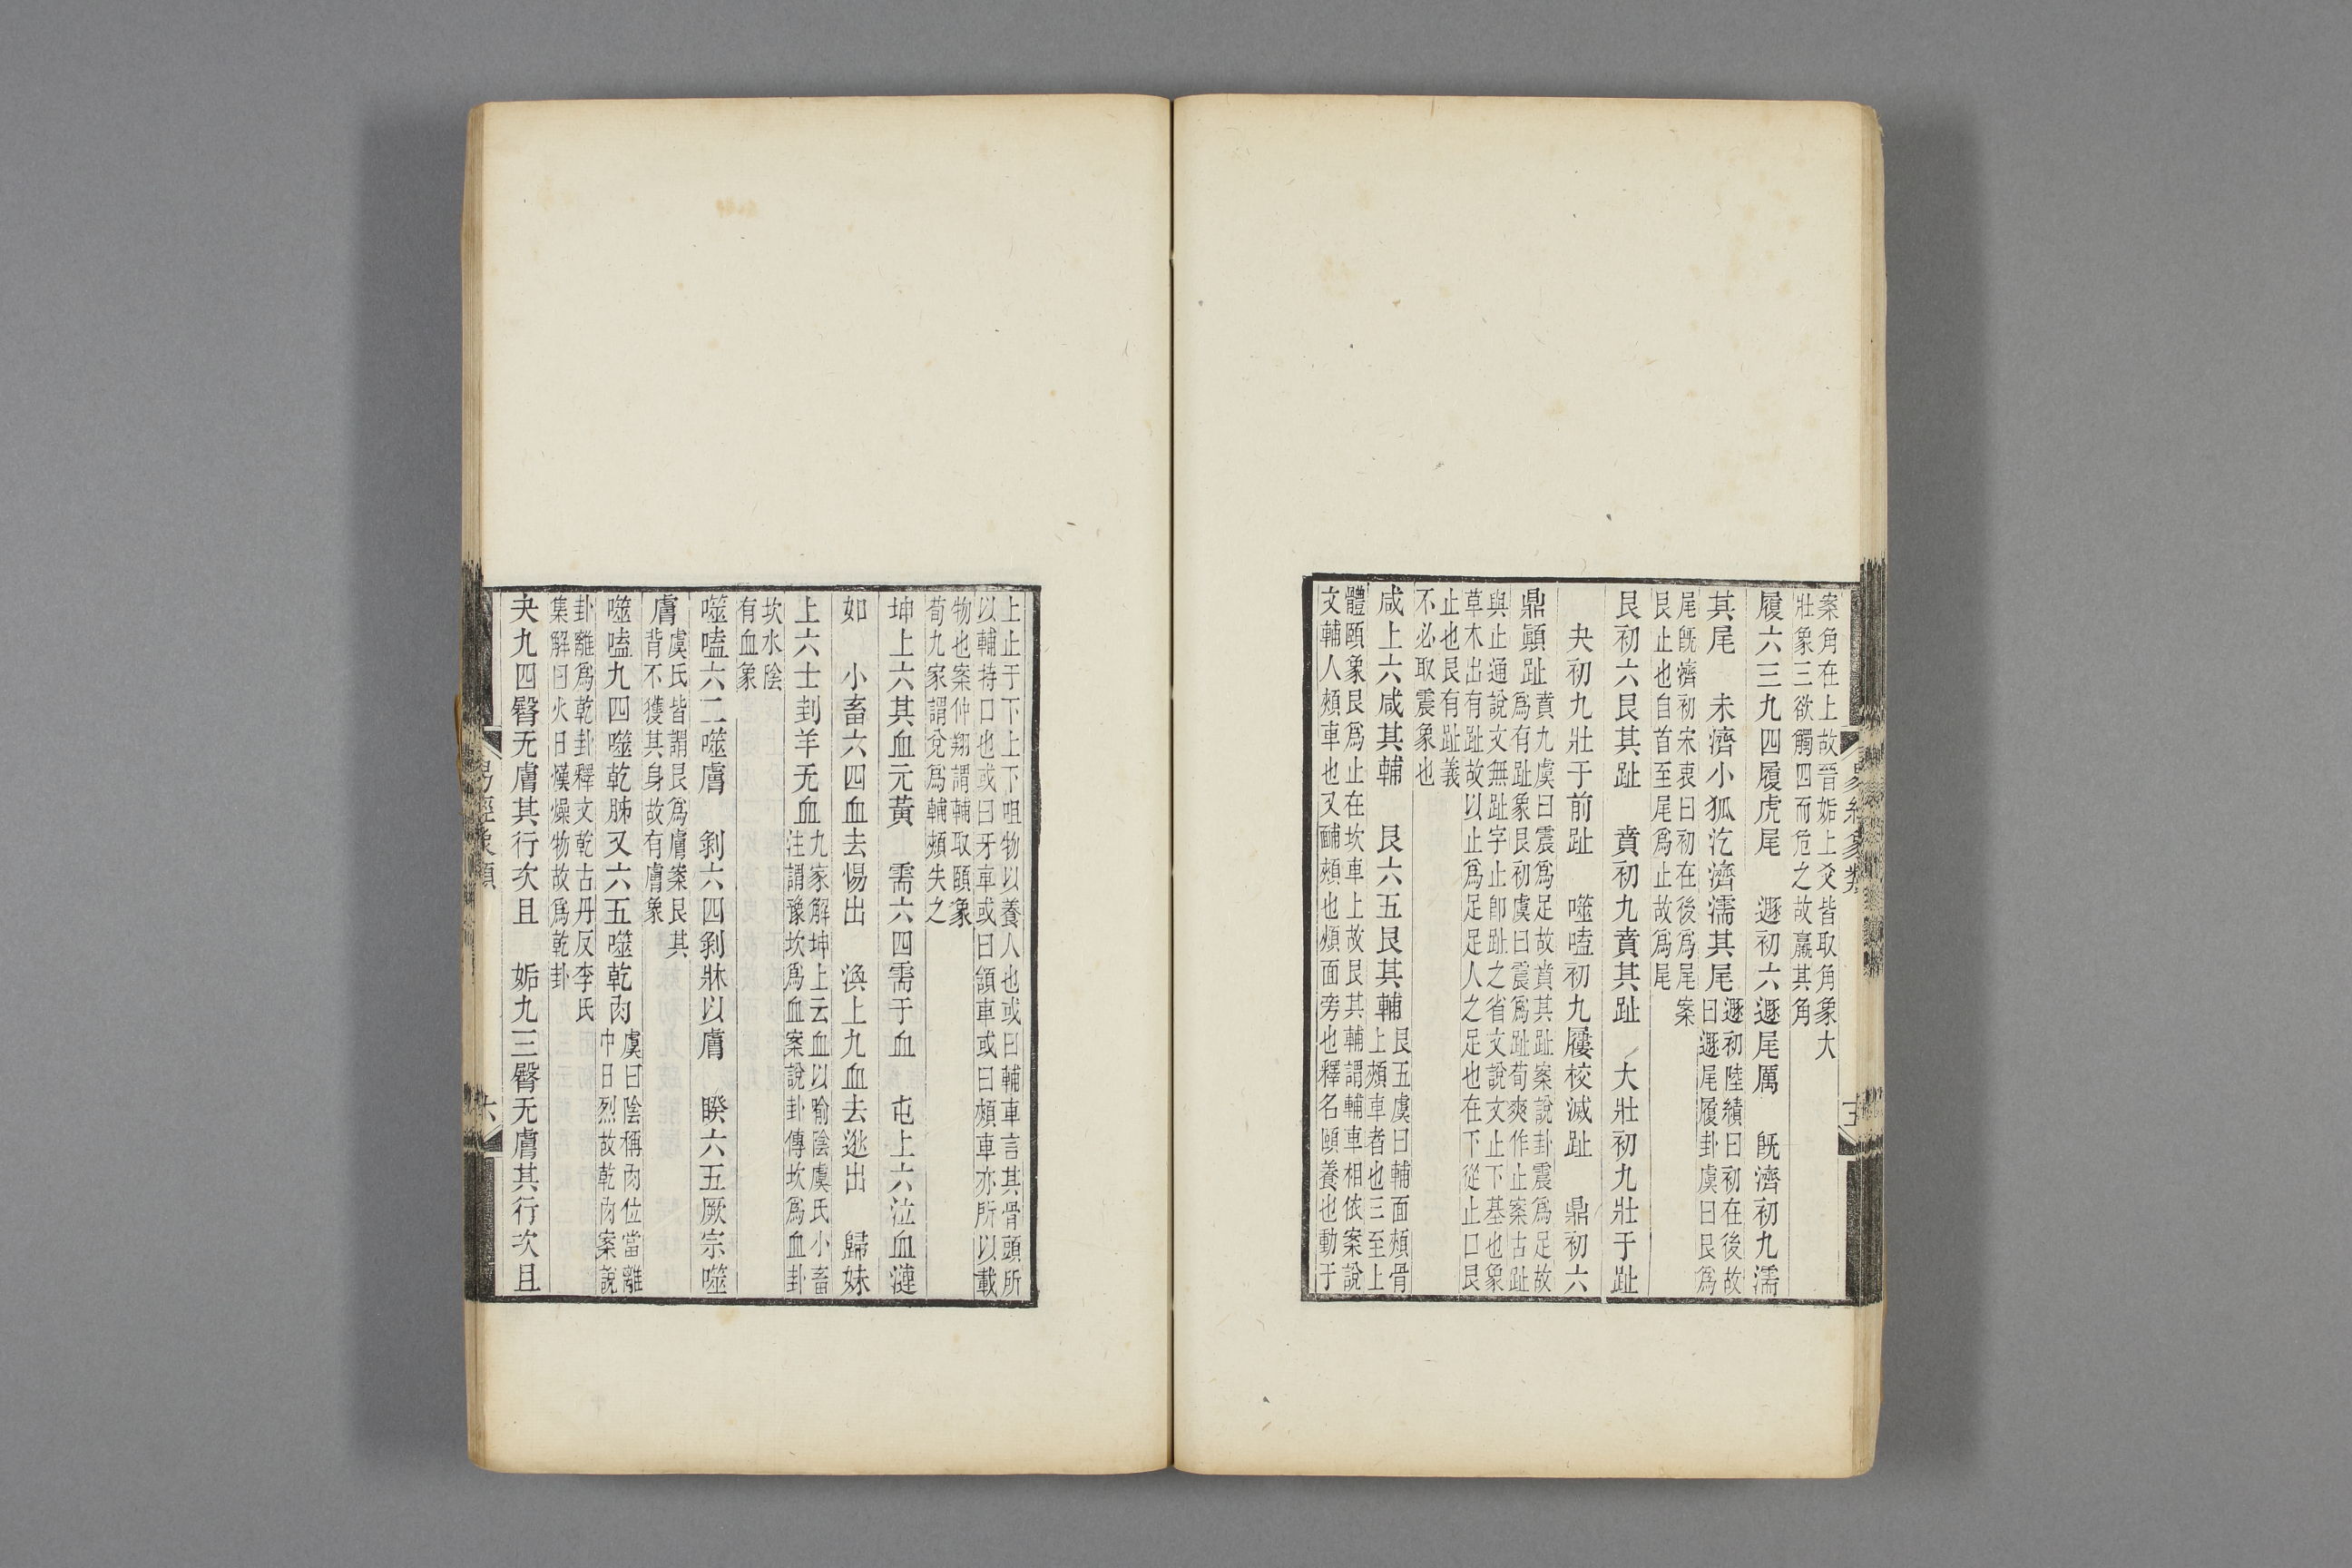 易經象類
五
案角在上故晉姤上爻皆取角象大
壯象三欲觸四而危之故羸其角
履六三九四履虎尾　遯初六遯尾厲　旣濟初九濡
其尾　未濟小狐汔濟濡其尾
遯初陸績曰初在後故
曰遯尾履卦虞曰艮爲
尾旣濟初宋衷曰初在後爲尾案
艮止也自首至尾爲止故爲尾
艮初六艮其趾　賁初九賁其趾　大壯初九壯于趾
夬初九壯于前趾　噬嗑初九屨校滅趾　鼎初六
鼎顚趾
賁九虞曰震爲足故賁其趾案說卦震爲足故
爲有趾象艮初虞曰震爲趾荀爽作止案古趾
與止通說文無趾字止卽趾之省文說文止下基也象
草木出有趾故以止爲足足人之足也在下從止口艮
止也艮有趾義
不必取震象也
咸上六咸其輔　艮六五艮其輔
艮五虞曰輔面頰骨
上頰車者也三至上
體頤象艮爲止在坎車上故艮其輔謂輔車相依案說
文輔人頰車也又䩉頰也頰面旁也釋名頤養也動于
上止于下上下咀物以養人也或曰輔車言其骨頭所
以輔持口也或曰牙車或曰頷車或曰頰車亦所以載
物也案仲翔謂輔取頤象
荀九家謂兌爲輔頰失之
坤上六其血元黃　需六四需于血　屯上六泣血漣
如　小畜六四血去惕出　渙上九血去逖出　歸妹
上六士刲羊无血
九家解坤上云血以喻陰虞氏小畜
注謂豫坎爲血案說卦傳坎爲血卦
坎水陰
有血象
噬嗑六二噬膚　剝六四剝牀以膚　睽六五厥宗噬
膚
虞氏皆謂艮爲膚案艮其
背不獲其身故有膚象
噬嗑九四噬乾胏又六五噬乾肉
虞曰陰稱肉位當離
中日烈故乾肉案說
卦離爲乾卦釋文乾古丹反李氏
集解曰火日熯燥物故爲乾卦
夬九四臀无膚其行次且　姤九三臀无膚其行次且
易經象類
六